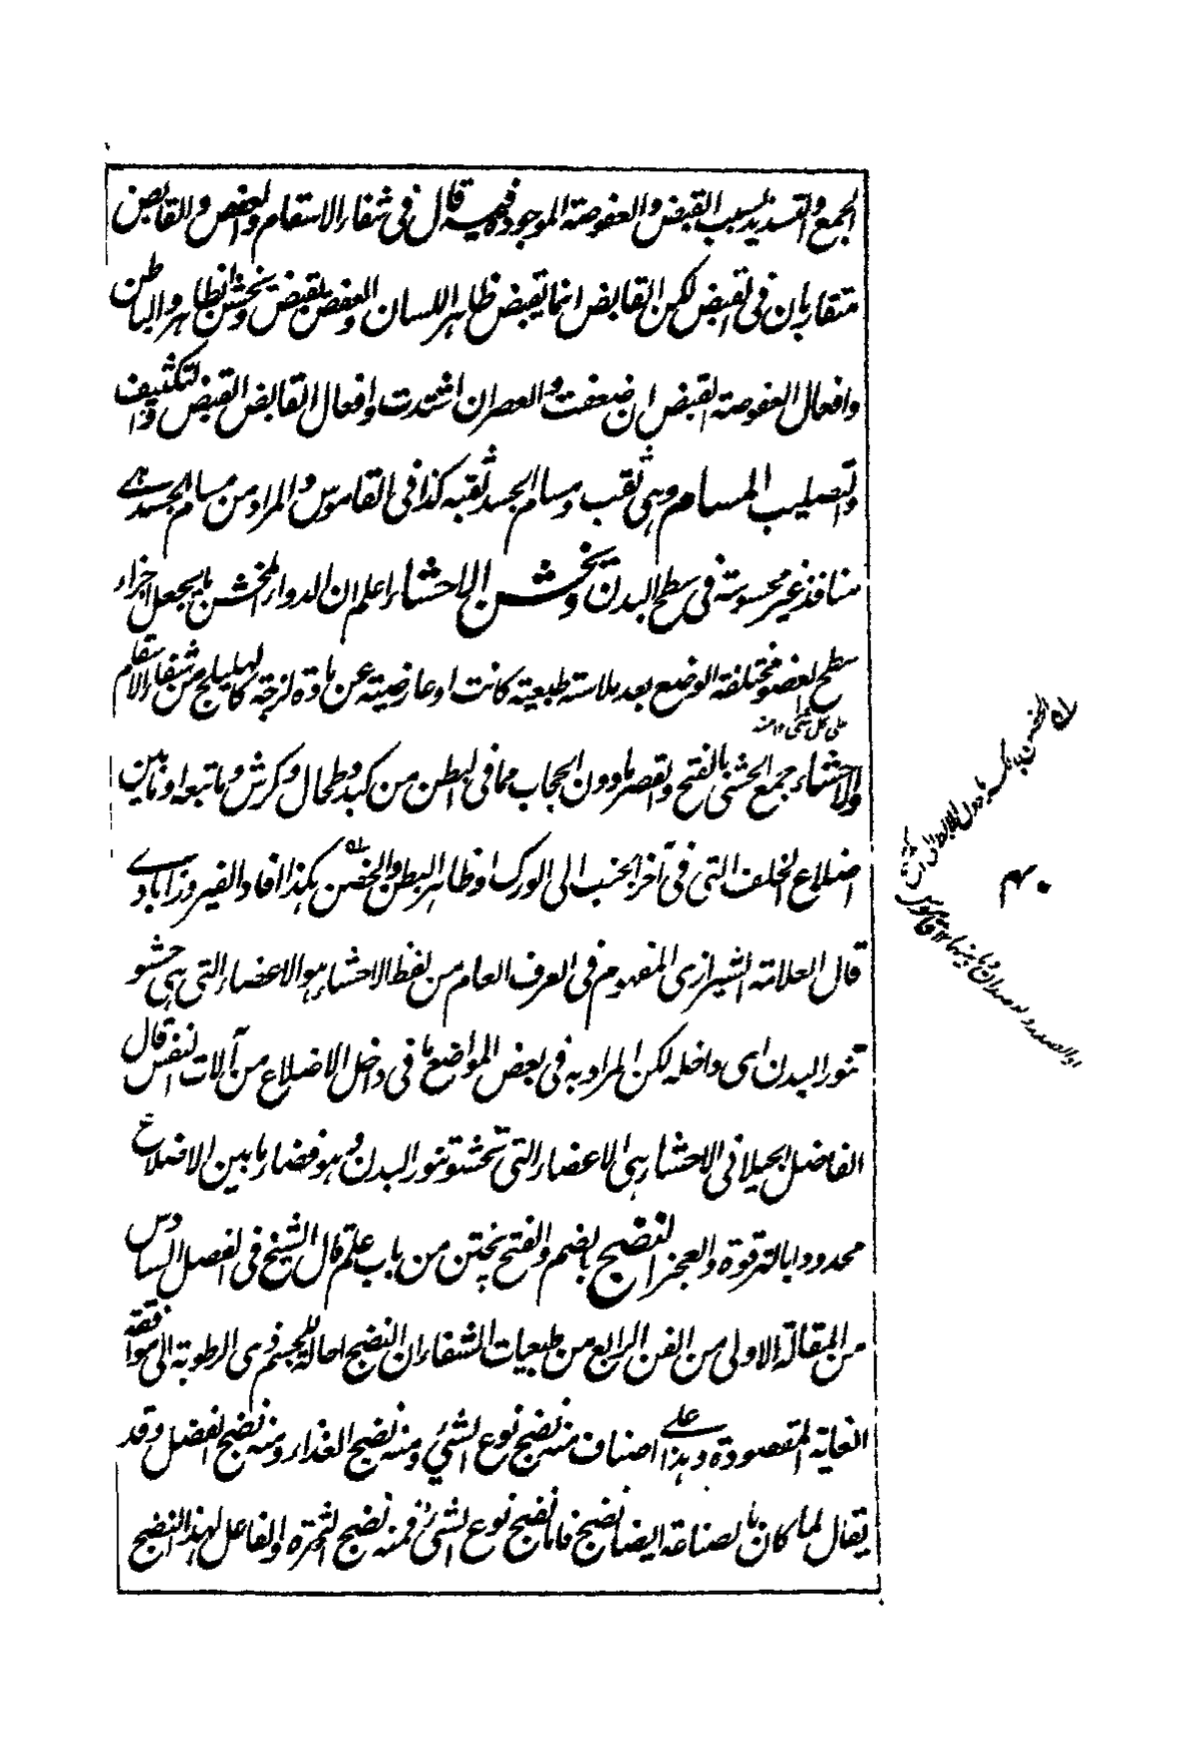 الجمع والتسديد بسبب القبض والعفوصة الموجودة فيه قال فى شفاء الاسقام والعفص والقابض
متقاربان فى القبض لكن القابض انما يقبض ظاهر اللسان والعفص يقبض ويخشن الظاهر والباطن
وافعال العفوصة القبض ان ضعفت والعصر ان اشتدت وافعال القابض القبض والتكثيف
والتصليب المسام وهى ثقب ومسام الجسد ثقبه كذا فى القاموس والمراد من مسام الجسد هے
منافذ غير محسوسة فى سطح البدن ويخشن الاحشاء اعلم ان الدواء المخشن ما يجعل اجزاء
سطح العضو مختلفة الوضع بعد ملاسته طبيعية كانت او عارضية عن مادة لزجة كالهليلج من شفاء الاسقام
والاحشاء جمع الحشى بالفتح والقصر ما دون الحجاب مما فى البطن من كبد وطحال وكرش وما تبعه او ما بين
اضلاع الخلف التى فى آخر الجنب الى الورك او ظاهر البطن والحضن هكذا افاد الفيروزآبادے
قال العلامة الشيرازى المفهوم فى العرف العام من لفظ الاحشاء هو الاعضاء التى هى حشو
تنور البدن اى داخله لكن المراد به فى بعض المواضع ما فى داخل الاضلاع من آلات التنفس قال
الفاضل الجيلانى الاحشاء هى الاعضاء التى تحشو تنور البدن وهو فضاء ما بين الاضلاع
محدودا بالترقوة والعجز النضج بالضم والفتح پختن من باب علم قال الشيخ فى الفصل السادس
من المقالة الاولى من الفن الرابع من طبعيات الشفاء ان النضج احالة للجسم ذى الرطوبة الى موافقة
الغاية المقصودة وهذا على اصناف منه نضج نوع الشئ ومنه نضج الغذاء ومنه نضج الفضل وقد
يقال لما كان بالصناعة ايضا نضج فاما نضج نوع الشئ فمنه نضج الثمرة والفاعل لهذا النضج
الحضن بالكسر ما دون الابط الى الكشح
او الصدر والعضدان وما بينهما قاموس